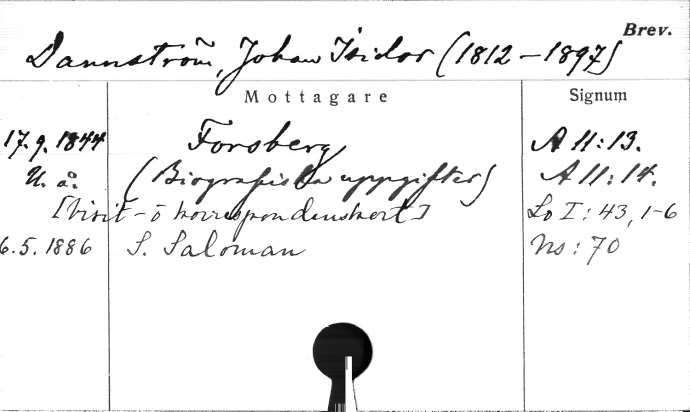 Brev.
Dannström, Johan Isidor (1812-1897)
Mottagare Signum
17.9.1844 Forsberg A II:13.
U. å. (Biografiska uppgifter) A II:14.
[Visit- o korrespondenskort] Lo I:43, 1-6
6.5.1886 S. Saloman Ns:70